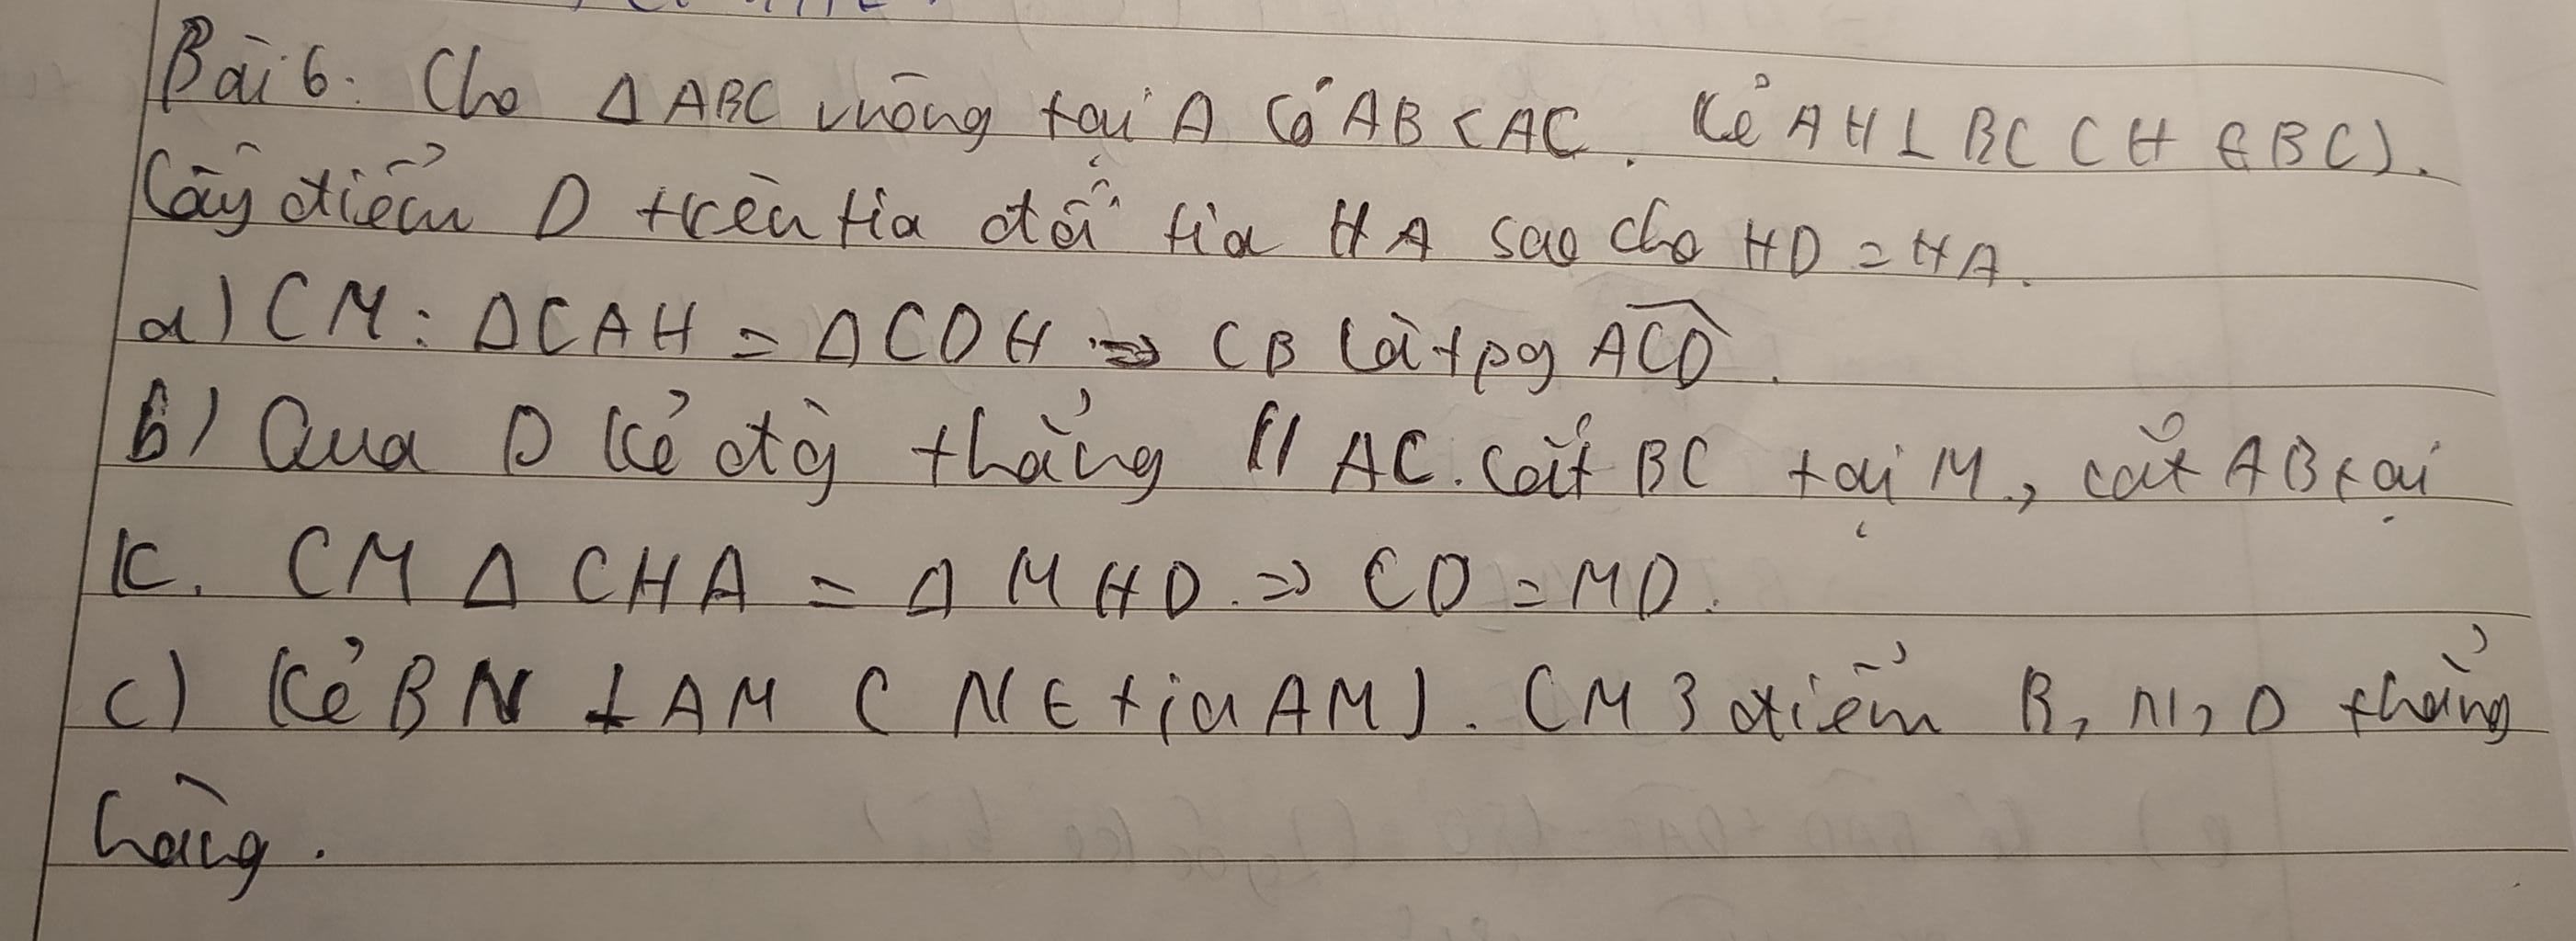 Bài 6: Cho Δ ABC vuông tại A có AB < AC. Kẻ AH ⊥ BC (H ∈ BC).
Lấy điểm D trên tia đối tia HA sao cho HD = HA.
a) CM: ΔCAH = ΔCDH => CB là tpg \widehat{ACD}.
b) Qua D kẻ đg thẳng // AC. cắt BC tại M, cắt AB tại
K. CM Δ CHA = Δ MHD. => CD = MD.
c) Kẻ BN ⊥ AM (N ∈ tia AM). CM 3 điểm B, N, D thẳng
hàng.